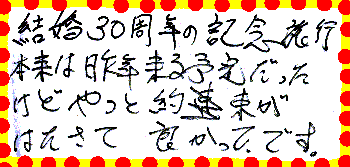 結婚30周年の記念旅行
本来は昨年来る予定だった
けどやっと約束が
はたさて 良かってです。